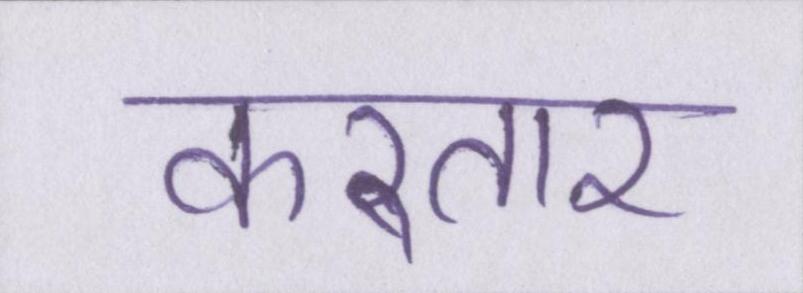 करतार